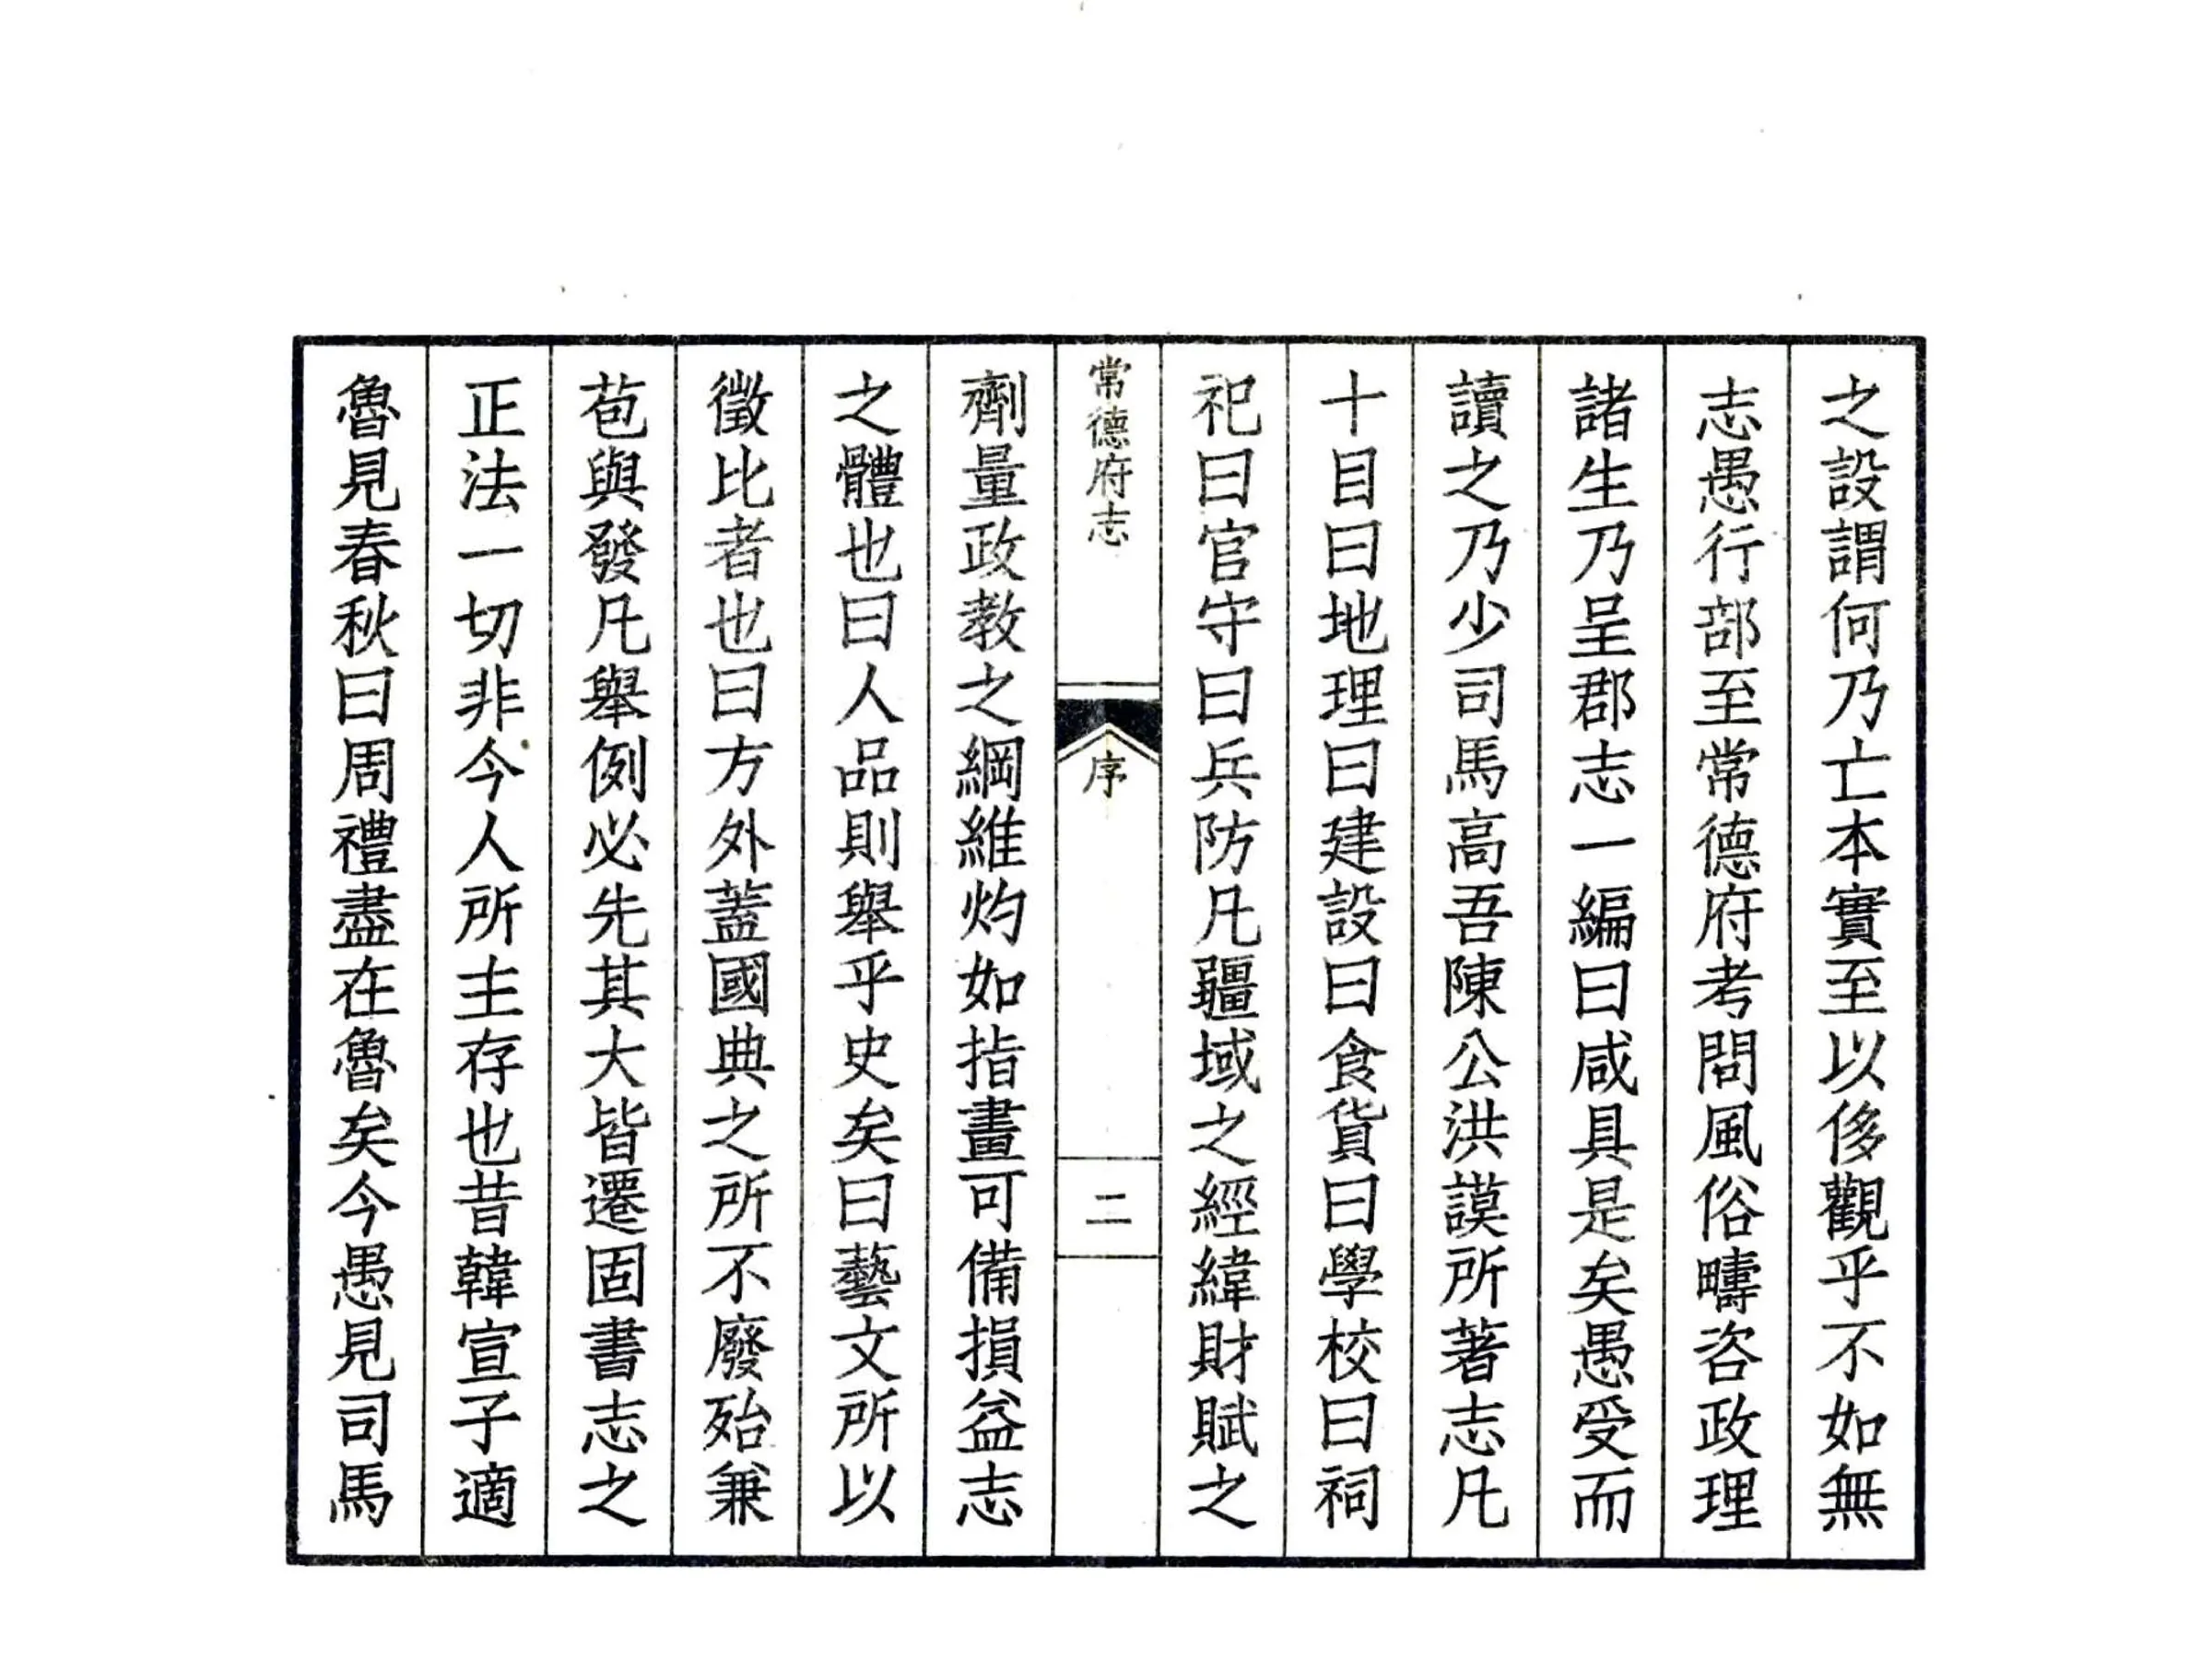 之設謂何乃亡本實至以侈觀乎不如無
志愚行部至常德府考問風俗疇咨政理
諸生乃呈郡志一編曰咸具是矣愚受而
讀之乃少司馬高吾陳公洪謨所著志凡
十目曰地理曰建設曰食貨曰學校曰祠
祀曰官守曰兵防凡疆域之經緯財賦之
常德府志
序
二
劑量政教之綱維灼如指畫可備損益志
之體也曰人品則舉乎史矣曰藝文所以
徵比者也曰方外蓋國典之所不廢殆兼
苞與發凡舉例必先其大皆遷固書志之
正法一切非今人所主存也昔韓宣子適
魯見春秋曰周禮盡在魯矣今愚見司馬